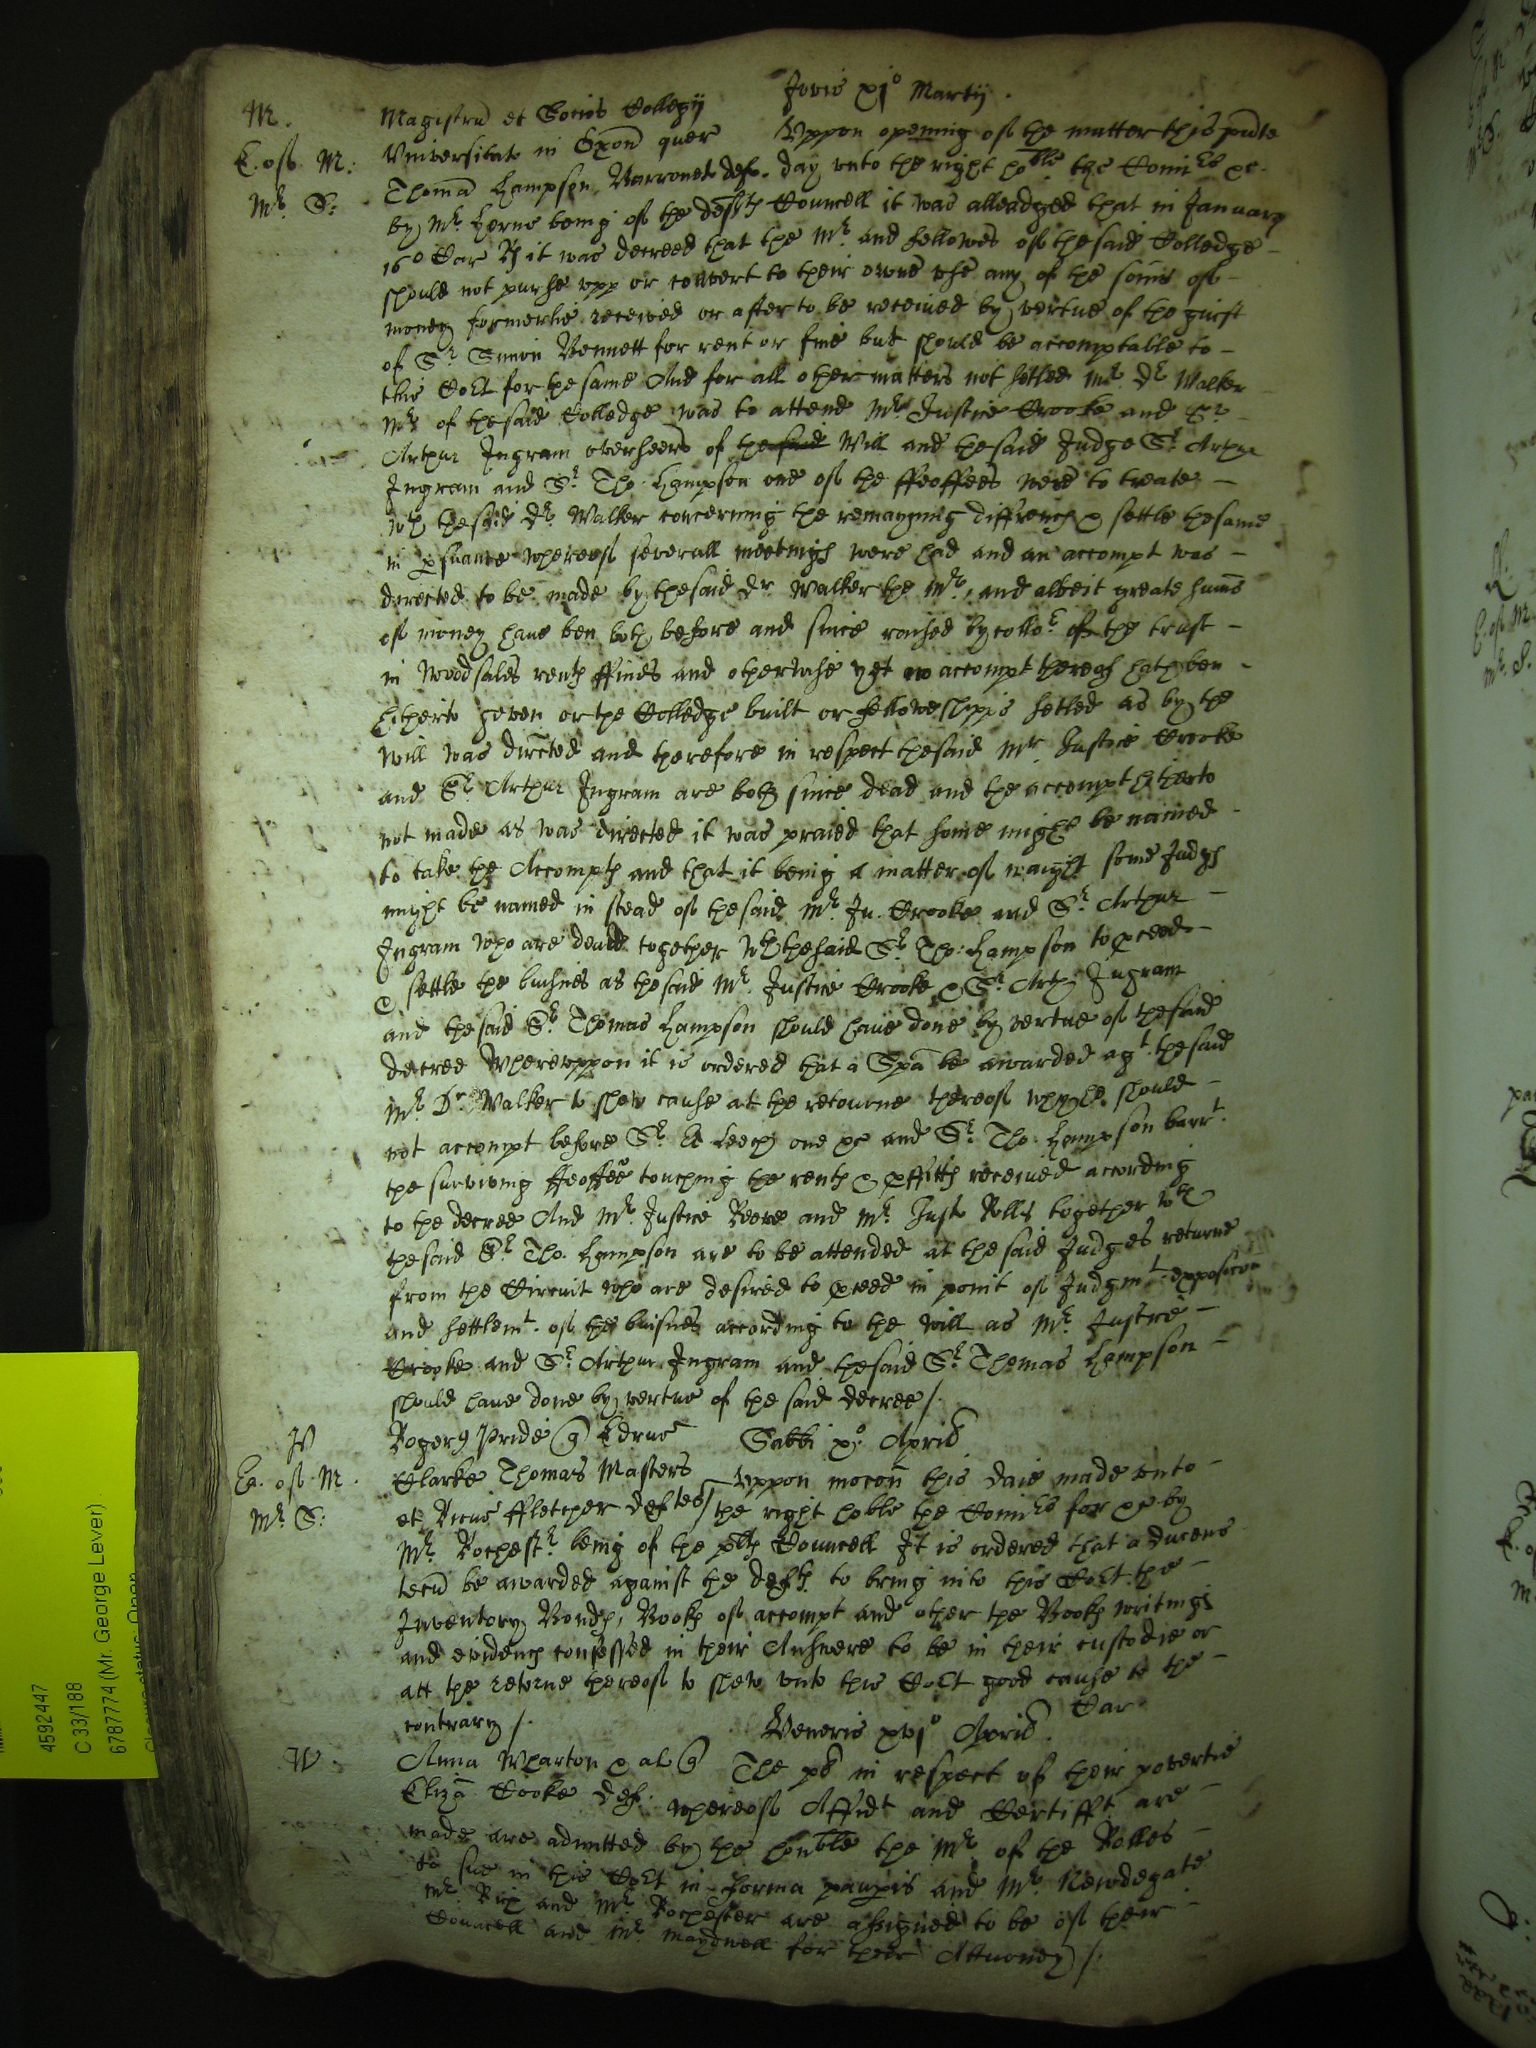 Jovis xj° Martij.
M.
Magistru et Socios Collegij
Uppon opening of the matter this pnte
E. of. M:
Universitat in Oxon quer
day unto the right hoble the Comrs &c.
Mr. S:
Thoma Hampson Barronet def.
by Mr. Herne being of the defts Councell it was alleadged that in January
16° Car R it was decreed that the Mr. and fellowes of the said Colledge
should not purse upp or convert to their owne use any of the somes of
money formerlie received or after to be received by vertue of the guift
of Sr. Simon Bennett for rent or fine but should be accomptable to
this Cort for the same And for all other matters not setled Mr. Dr. Walker
Mr. of the said Colledge was to attend Mr. Justice Crooke and Sr.
Arthur Ingram overseers of the said Will and the said Judge Sr. Arthur
Ingram and Sr. Tho. Hampson one of the ffeoffees were to treate
wth the said Dr. Walker concerning the remayning diffrences & settle the same
in psuance whereof severall meetings were had and an accompt was
directed to be made by the said Dr. Walker the Mr., and albeit greate sumes
of money have ben both before and since raised by collor of the trust
in Woodsales rents ffines and otherwise yet no accompt thereof hath ben
hitherto geven or the Colledge built or fellowshipps setled as by the
will was directed and therefore in respect the said Mr. Justice Crooke
and Sr. Arthur Ingram are both since dead and the accompt hitherto
not made as was directed it was praied that some might be named
to take the Accompts and that it being a matter of waight some Judges
might be named in stead of the said Mr. Ju. Crooke and Sr. Arthur
Ingram who are deade together wth the said Sr. Tho: Hampson to pceed
& settle the busines as the said Mr. Justice Crooke & Sr. Arth. Ingram
and the said Sr. Thomas Hampson should have done by vertue of the said
decree Whereuppon it is ordered that a Spa be awarded agt. the said
Mr. Dr. Walker to shew cause at the retourne thereof why he should
not accompt before Sr. Ed Leech one &c and Sr. Tho. Hampson barrt.
the surviving ffeoffee touching the rents & pffitts received according
to the decree And Mr. Justice Reeve and Mr. Just. Rolls together wth
the said Sr. Tho. Hampson are to be attended at the said Judges returne
from the Circuit who are desired to pceed in point of Judgmt. exposicon
and settlemt. of the buisnes according to the will as Mr. Justice
Crooke and Sr. Arthur Ingram and the said Sr. Thomas Hampson
should have done by vertue of the said decree /.
P
Rogerus Pride q Edrus
Sabbi x°. Aprilis
Ea. of. M.
Clarke Thomas Masters
Uppon mocon this daie made unto
Mr. S:
et Ricus ffletcher deftes /
the right hoble the Comrs for &c by
Mr. Rochestr. being of the plts Councell It is ordered that a ducens
tecu be awarded against the defts. to bring into this Cort the
Inventory Bonds, Books of accompt and other the Books writings
and evidences confessed in their Answere to be in their custodie or
att the returne thereof to shew unto this Cort good cause to the
contrary /.
Veneris xvj° Aprilis.
Car
W.
Anna Wharton & al q
The plt in respect of their povertie
Eliza Cooke def.
whereof Affidt and Certifft are
made are admitted by the honble the Mr. of the Rolles
to sue in this Cort in forma paupis and Mr. Newdegate
Mr. Rich and Mr. Rochester are assigned to be of their
Councell and Mr. Maydwell for their Attorney /.
4592447
C 33/188
6787774 (Mr. George Lever)